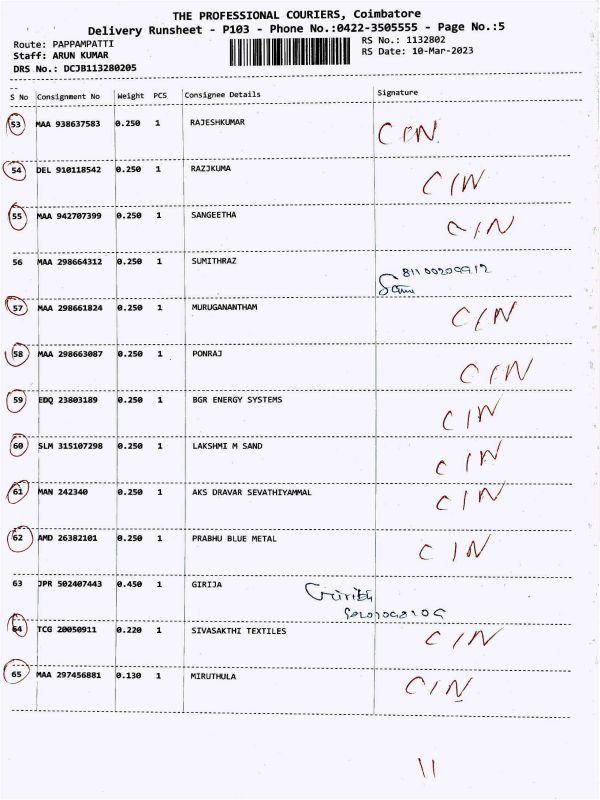 THE PROFESSIONAL COURIERS, Coimbatore
Delivery Runsheet - P103 - Phone No.:0422-3505555 - Page No.:5
Route: PAPPAMPATTI
RS No.: 1132802
Staff: ARUN KUMAR
RS Date: 10-Mar-2023
DRS No.: DCJB113280205
S No Consignment No Weight PCS Consignee Details Signature
53 MAA 938637583 0.250 1 RAJESHKUMAR C/N
54 DEL 910118542 0.250 1 RAZJKUMA C/N
55 MAA 942707399 0.250 1 SANGEETHA C/N
56 MAA 298664312 0.250 1 SUMITHRAZ
57 MAA 298661824 0.250 1 MURUGANANTHAM C/N
58 MAA 298663087 0.250 1 PONRAJ C/N
59 EDQ 23803189 0.250 1 BGR ENERGY SYSTEMS C/N
60 SLM 315107298 0.250 1 LAKSHMI M SAND C/N
61 MAN 242340 0.250 1 AKS DRAVAR SEVATHIYAMMAL C/N
62 AMD 26382101 0.250 1 PRABHU BLUE METAL C/N
63 JPR 502407443 0.450 1 GIRIJA
64 TCG 20050911 0.220 1 SIVASAKTHI TEXTILES C/N
65 MAA 297456881 0.130 1 MIRUTHULA C/N
11